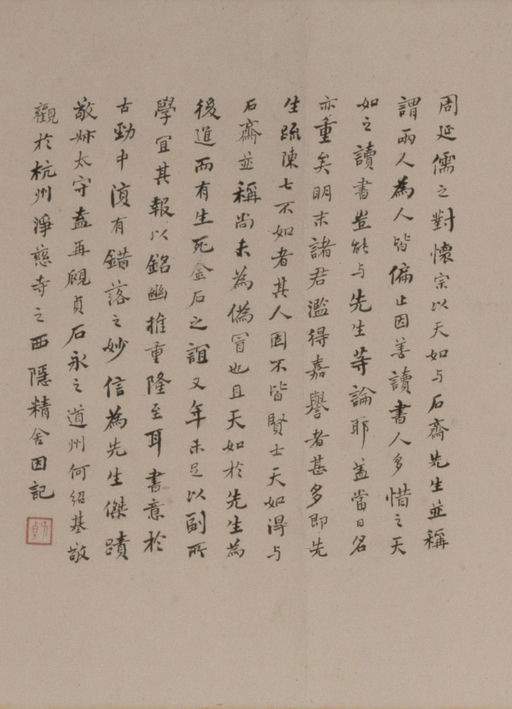 周延儒之對懷宗以天如与石齋先生並稱
謂兩人為人皆偏止因善讀書人多惜之天
如之讀書豈能与先生等論耶蓋當日名
亦重矣明末諸君濫得嘉譽者甚多即先
生疏陳七不如者其人固不皆賢士天如得与
石齋並稱尚未為僞冒也且天如於先生為
後進而有生死金石之誼又年未足以副所
學宜其報以銘幽推重隆至耳書意於
古勁中復有錯落之妙信為先生傑蹟
敬叔太守盍再覛貞石永之道州何紹基敬
觀於杭州淨慈寺之西隱精舍因記